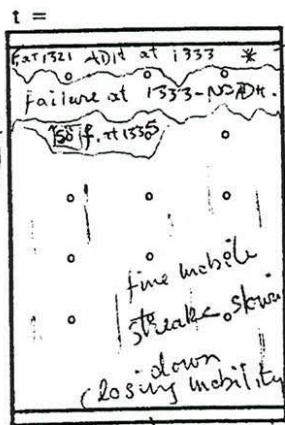 t =
at 1321 ADH at 1333 *
failure at 1333-No ADH.
150 f. at 1335
fine mobile
streaks. slow
down
(losing mobility